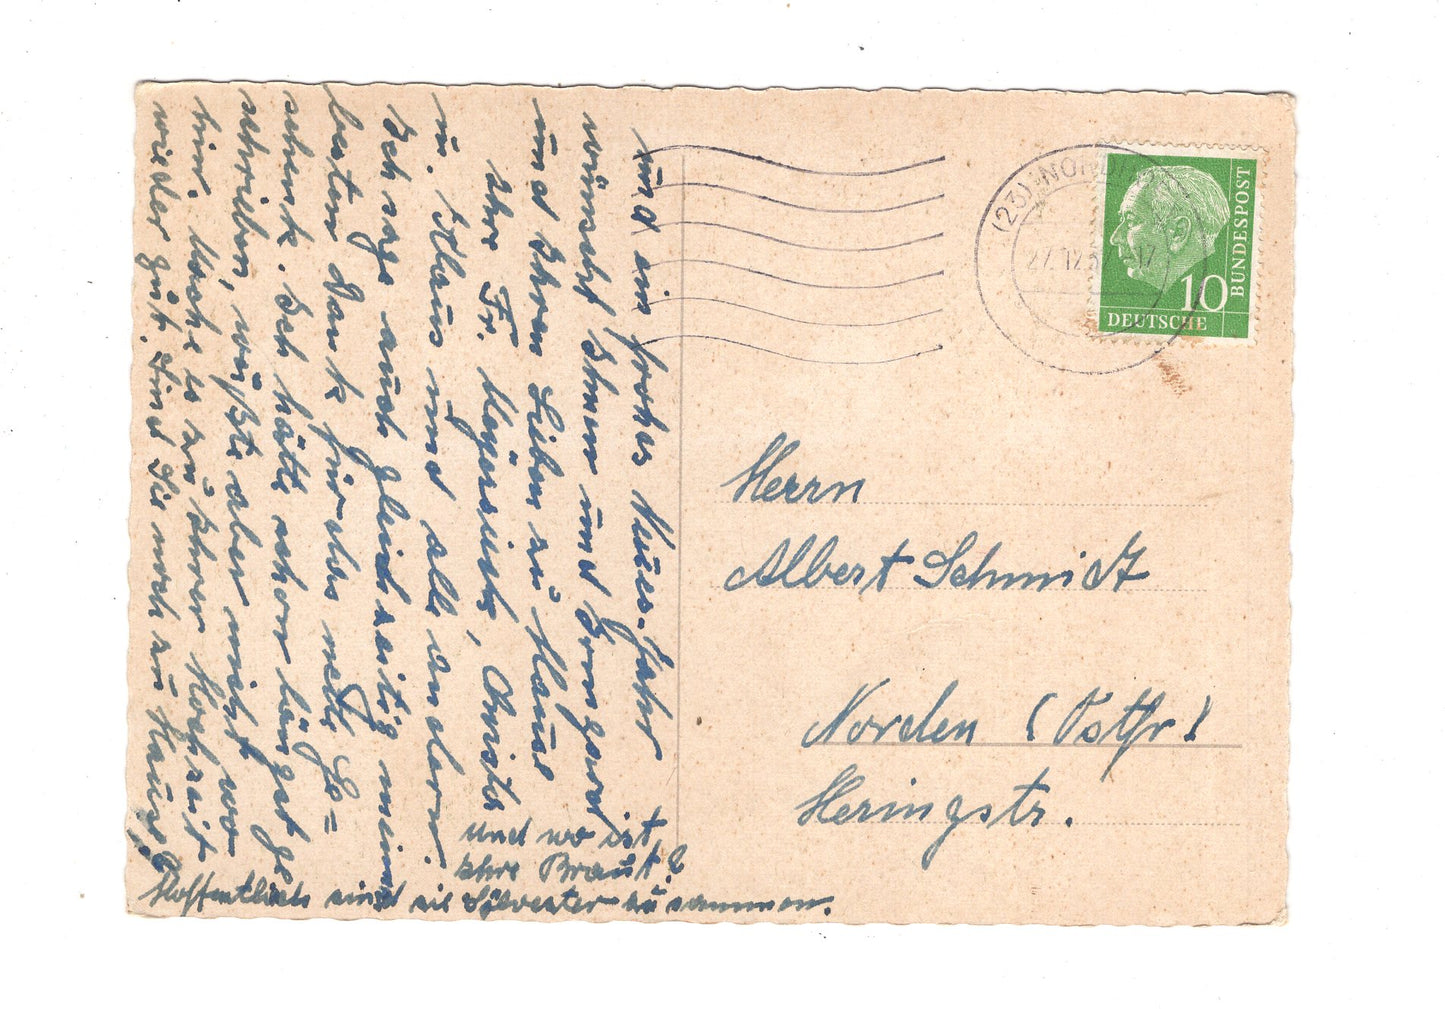 und ein frohes Neues-Jahr
wünscht Ihnen und
und Ihren Lieben zu Haus
Ihre Fr. Christa
u. Klaus und all andern.
Ich sage auch gleichzeitig meinen
besten Dank für das nette Ge=
schenk. Ich hätte schon längst ge
schrieben, wußte aber nicht wo
hin. es zu Ihrer Hochzeit
wieder gut. Sind Sie noch zu Hause?
und wo ist
Ihre Braut?
Hoffentlich sind sie Sylvester zusammen.
(23) NORDEN
27.12.5 -17
DEUTSCHE
BUNDESPOST
10
Herrn
Albert Schmidt
Norden (Ostfr)
Heringstr.